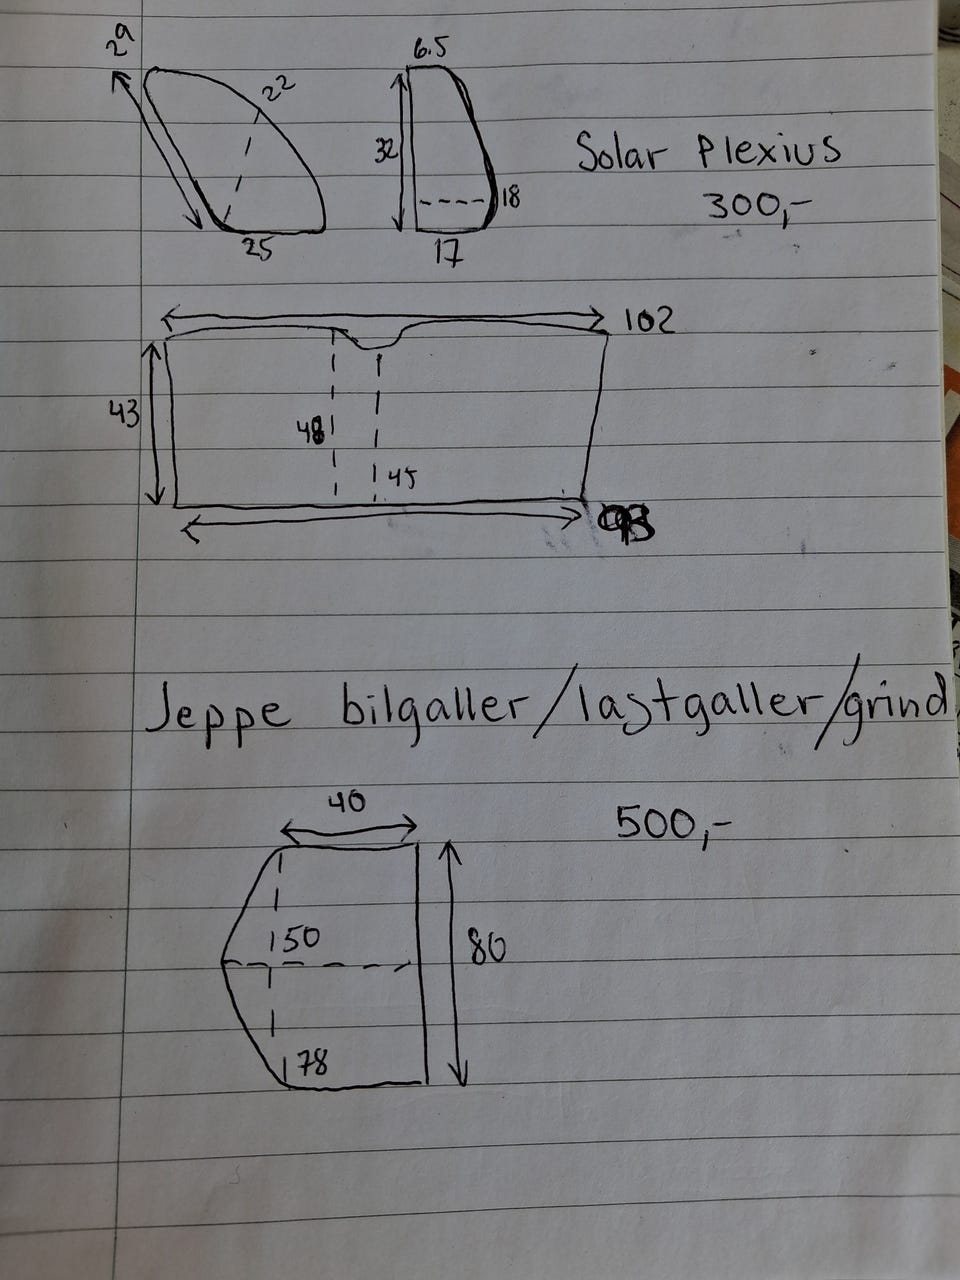 29
22
25
6.5
32
18
17
Solar Plexius
300,-
102
43
48
45
93
Jeppe bilgaller/lastgaller/grind
40
500,-
50
80
78